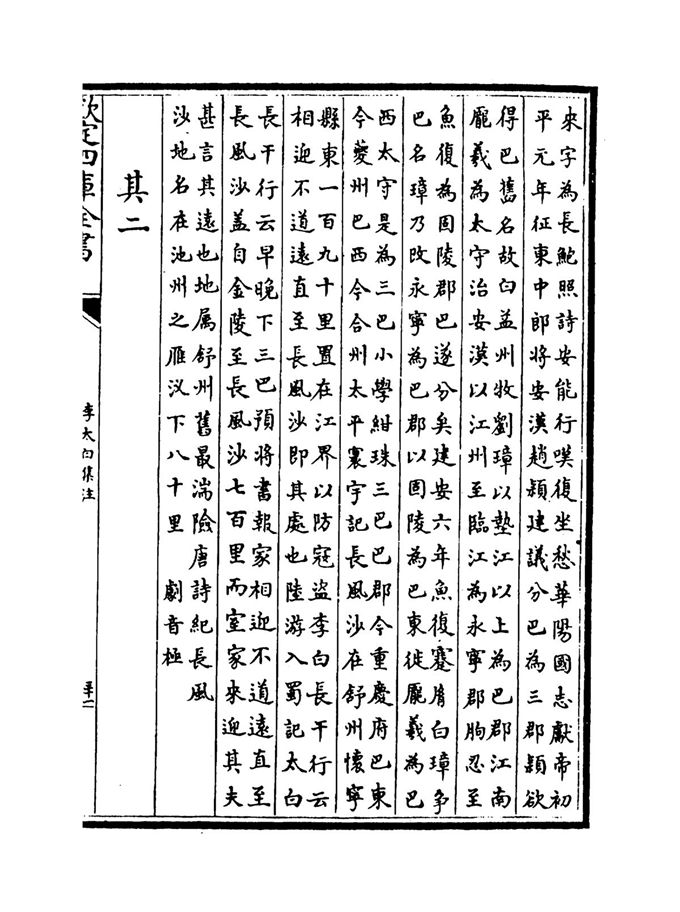 來字為長鮑照詩安能行嘆復坐愁華陽國志獻帝初
平元年征東中郎將安漢趙穎建議分巴為三郡穎欲
得巴舊名故白益州牧劉璋以墊江以上為巴郡江南
龎羲為太守治安漢以江州至臨江為永寧郡朐忍至
魚復為固陵郡巴遂分矣建安六年魚復蹇胤白璋爭
巴名璋乃改永寧為巴郡以固陵為巴東徙龎羲為巴
西太守是為三巴小學紺珠三巴巴郡今重慶府巴東
今夔州巴西今合州太平寰宇記長風沙在舒州懷寧
縣東一百九十里置在江界以防冦盜李白長干行云
相迎不道遠直至長風沙即其處也陸游入蜀記太白
長干行云早晚下三巴預將書報家相迎不道遠直至
長風沙盖自金陵至長風沙七百里而室家來迎其夫
甚言其遠也地属舒州舊最湍險唐詩紀長風
沙地名在池州之雁汊下八十里 劇音極
其二
欽定四庫全書
李太白集注